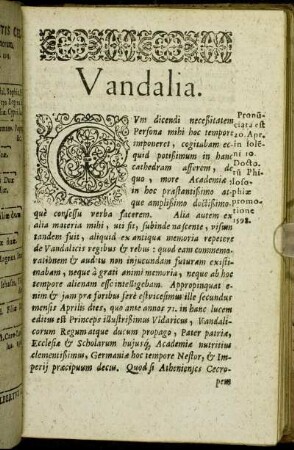 Vandalia.
CVm dicendi necessitatem
Persona mihi hoc tempore
imponeret, cogitabam ec-
quid potissimum in hanc
cathedram afferem, de
quo, more Academiæ,
in hoc præstantissimo at-
que amplissimo doctissimo-
què consessu verba facerem. Alia autem ex
alia materia mihi, uti fit, subinde nascente, visum
tandem fuit, aliquid ex antiqua memoria repetere
de Vandalicis regibus & rebus: quod eam commemo-
rationem & auditu non injucundam futuram existi-
mabam, neque à grati animi memoria, neque ab hoc
tempore alienam esse intelligebam. Appropinquat e-
nim & jam præ foribus ferè est vicesimus ille secundus
mensis Aprilis dies, quo ante annos 71. in hanc lucem
editus est Princeps illustrissimus Vldaricus, Vandali-
corum Regum atque ducum propago, Pater patriæ,
Ecclesiæ & Scholarum hujusq́; Academiæ nutritius
clementissimus, Germaniæ hoc tempore Nestor, & Im-
perij præcipuum decus. Quod si Athenienses Cecro-
pem
Pronū-
ciata est
20. Apr.
in solen
ni 10.
Docto-
rū Phi-
loso-
phiæ
promo-
tione
1598.